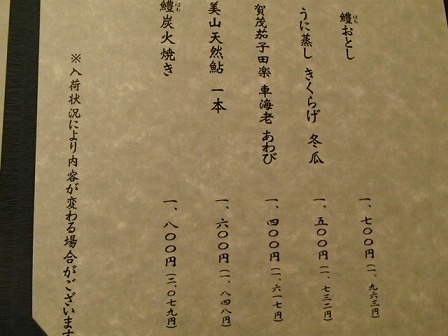 鱧おとし 一、七〇〇円(一、九六三円)
はも
うに蒸し きくらげ 冬瓜 一、五〇〇円(一、七三二円)
賀茂茄子田楽 車海老 あわび 一、四〇〇円(一、六一七円)
美山天然鮎 一本 一、六〇〇円(一、八四八円)
鱧炭火焼き 一、八〇〇円(二、〇七九円)
はも
※入荷状況により内容が変わる場合がございます